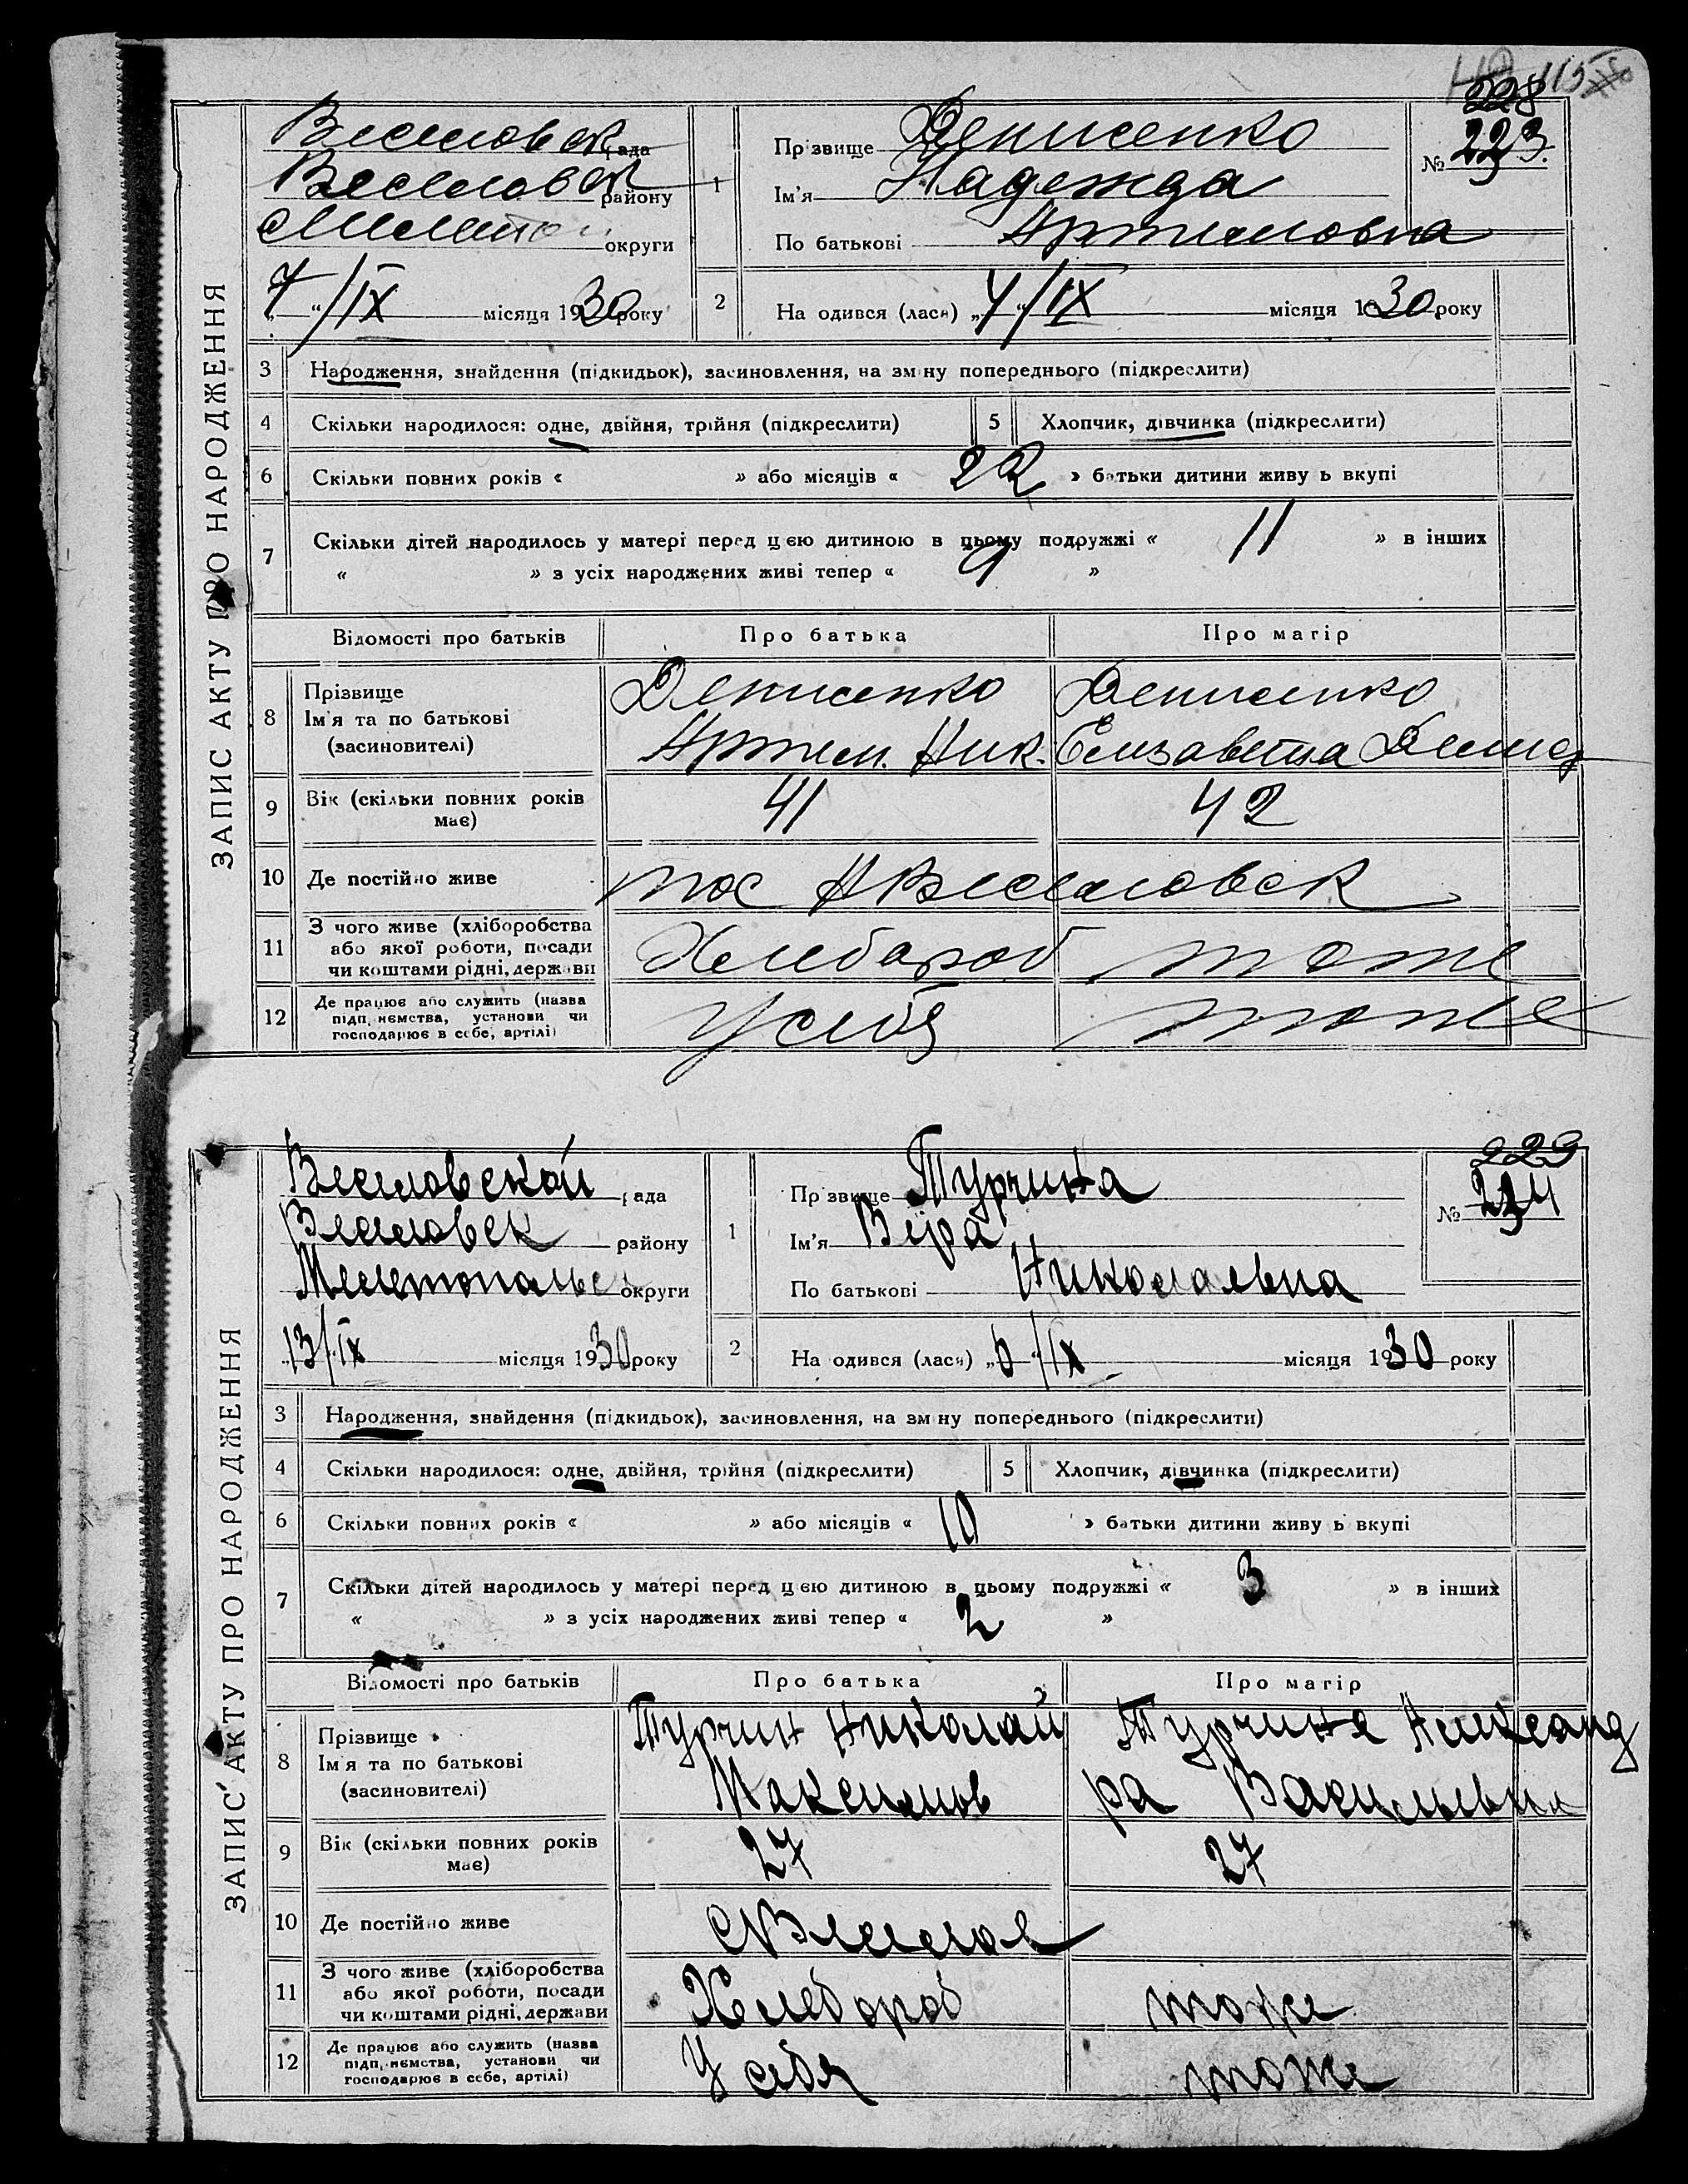 115
228
223.
ЗАПИС АКТУ ПРО НАРОДЖЕННЯ
Веселовск рада
Веселовск району
Мелитоп округи
7/IX місяця 1930 року
1 Прізвище Денисенко
Ім'я Надежда
По батькові Артимовна
№
2 Народився (лася) „7“/IX місяця 1930 року
3 Народження, знайдення (підкидьок), засиновлення, на зміну попереднього (підкреслити)
4 Скільки народилося: одне, двійня, трійня (підкреслити) 5 Хлопчик, дівчинка (підкреслити)
6 Скільки повних років « » або місяців « 22 » батьки дитини живуть вкупі
7 Скільки дітей народилось у матері перед цією дитиною в цьому подружжі « 11 » в інших
« » з усіх народжених живі тепер « 9 »
Відомості про батьків Про батька Про матір
8 Прізвище
Ім'я та по батькові
(засиновителі)
Денисенко
Артем. Ник.
Денисенко
Елизавета Демид
9 Вік (скільки повних років має) 41 42
10 Де постійно живе пос Н Веселовск
11 З чого живе (хліборобства
або якої роботи, посади
чи коштами рідні, держави
Хлебароб тоже
12 Де працює або служить (назва
підприємства, установи чи
господарює в себе, артілі)
У себя тоже
229
224
ЗАПИС АКТУ ПРО НАРОДЖЕННЯ
Веселовской рада
Веселовск району
Мелитопольс округи
13/IX місяця 1930 року
1 Прізвище Турчина
Ім'я Вера
По батькові Николаевна
№
2 Народився (лася) „6“/IX місяця 1930 року
3 Народження, знайдення (підкидьок), засиновлення, на зміну попереднього (підкреслити)
4 Скільки народилося: одне, двійня, трійня (підкреслити) 5 Хлопчик, дівчинка (підкреслити)
6 Скільки повних років « » або місяців « 10 » батьки дитини живуть вкупі
7 Скільки дітей народилось у матері перед цією дитиною в цьому подружжі « 3 » в інших
« » з усіх народжених живі тепер « 2 »
Відомості про батьків Про батька Про матір
8 Прізвище
Ім'я та по батькові
(засиновителі)
Турчин Николай
Максимов
Турчина Александ
ра Васильевна
9 Вік (скільки повних років має) 27 27
10 Де постійно живе с Веселое
11 З чого живе (хліборобства
або якої роботи, посади
чи коштами рідні, держави
Хлебороб тоже
12 Де працює або служить (назва
підприємства, установи чи
господарює в себе, артілі)
У себя тоже